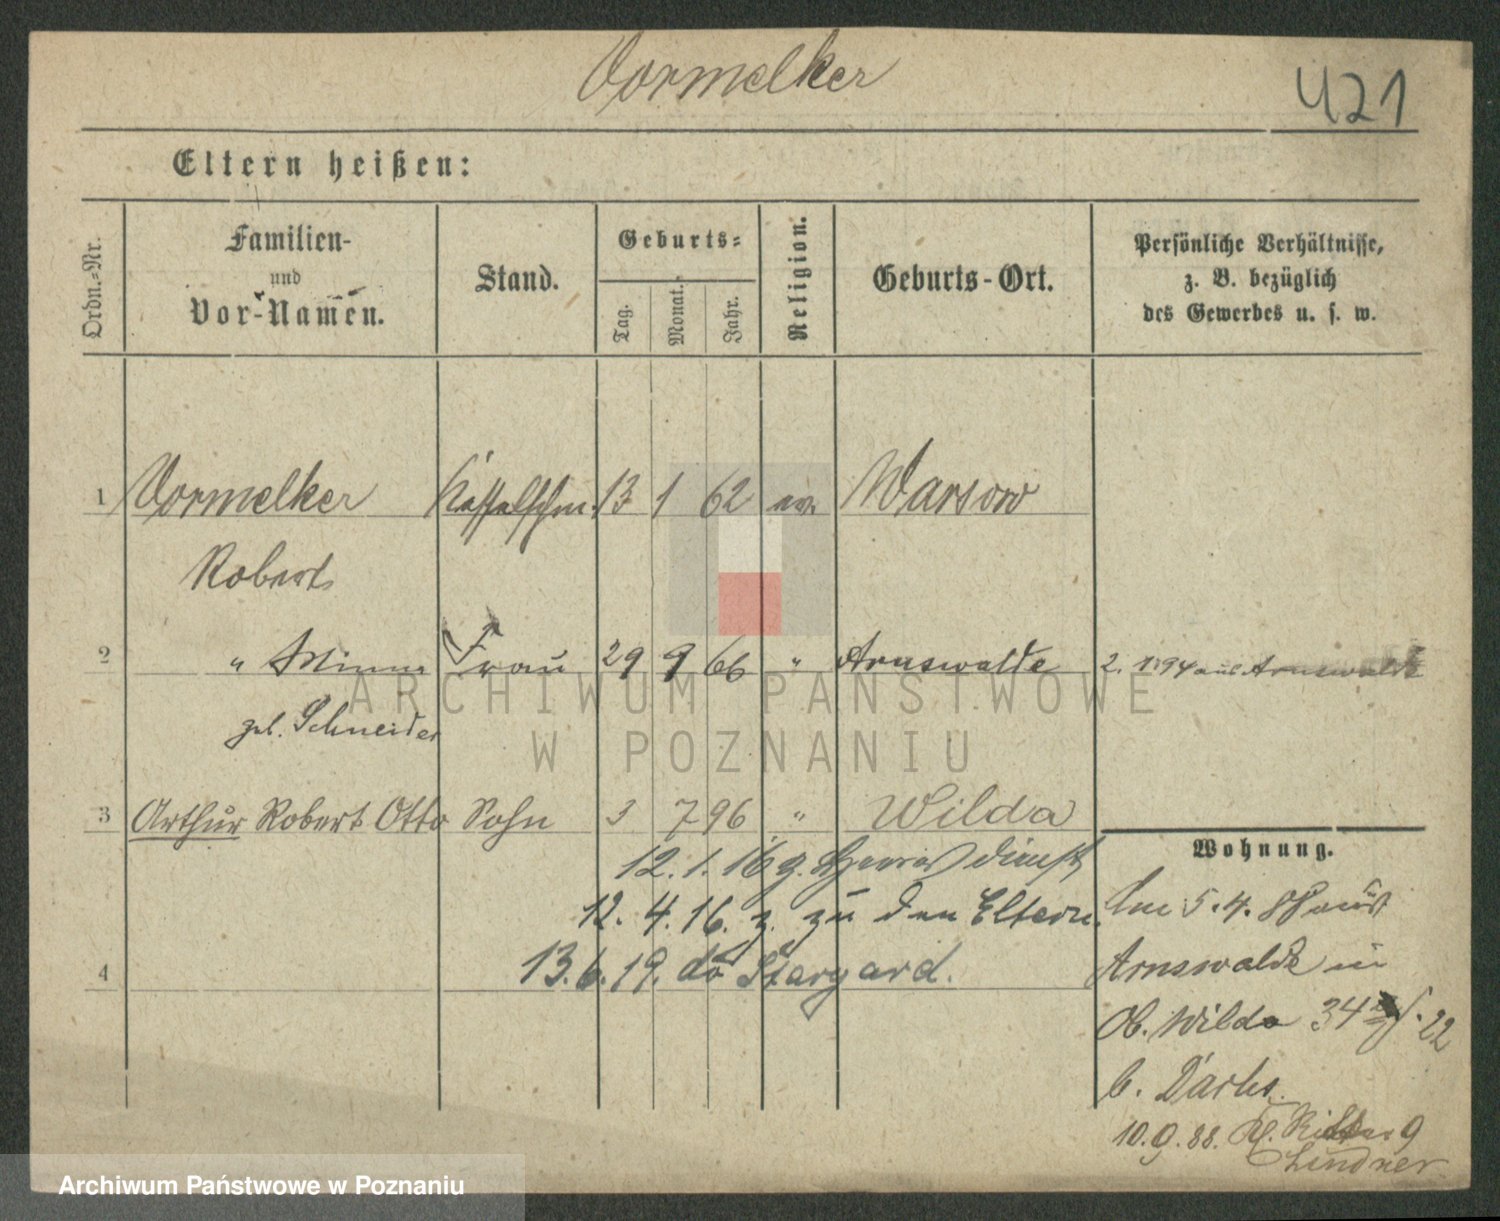 Vormelker
421
Eltern heißen:
Ordn.-Nr.
Familien-
und
Vor-Namen.
Stand.
Geburts-
Tag.
Monat.
Jahr.
Religion.
Geburts-Ort.
Persönliche Verhältnisse,
z. B. bezüglich
des Gewerbes u. s. w.
1 Vormelker Kesselschm. 13 1 62 ev. Warsow
Robert
2 " Minna Frau 29 9 66 " Arnswalde 2. 1. 94 aus Arnswalde
geb. Schneider
3 Arthur Robert Otto Sohn 3 7 96 " Wilda
Wohnung.
12. 1. 16 g. Heeresdienst
12. 4. 16. z. zu den Eltern.
13. 6. 19. do Stargard.
4
Am 5. 4. aus
Arnswalde in
Ob. Wilda 34 22
b.
10. 9. 88. Kl. Ritter 9
Lindner
ARCHIWUM PAŃSTWOWE
W POZNANIU
Archiwum Państwowe w Poznaniu